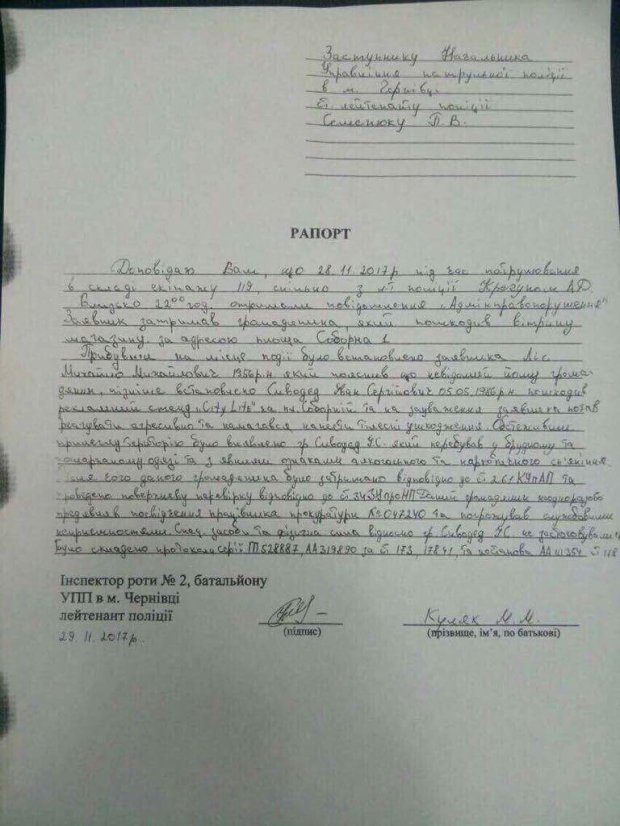 Заступнику Начальника
Управління патрульної поліції
в м. Чернівці
ст. лейтенанту поліції
Семенюку П.В.
РАПОРТ
Доповідаю Вам, що 28.11.2017р. під час патрулювання
в складі екіпажу 119, спільно з к-т поліції А.Д.
Близько 22⁰⁰ год. отримали повідомлення "Адмінправопорушення"
Заявник затримав громадянина, який пошкодив вітрину
магазину за адресою площа Соборна 1
Прибувши на місце події було встановлено заявника Ліс
Михайло Михайлович 1956р.н. який пояснив що невідомий йому грома-
дянин, пізніше встановлено Сиводед Іван Сергійович 05.05.1986р.н. пошкодив
рекламний стенд "City Life" на пл. Соборній та на зауваження заявника почав
реагувати агресивно та намагався нанести тілесні ушкодження. Обстеживши
прилеглу територію було виявлено гр. Сиводед І.С. який перебував у брудному та
одязі та з явними ознаками алкогольного та наркотичного сп'яніння
чого даного громадянина було затримано відповідно до ст. 261 КУпАП та
проведено поверхневу перевірку відповідно до ст. 34 ЗУ про НП Даний громадянин неодноразово
предявляв посвідчення працівника прокуратури №047240 та погрожував службовими
неприємностями. Спец. засоби та фізична сила відносно гр. Сиводед І.С. не застосовували
Було складено протоколи серії 528887, АА 319890 за ст. 173, 178 ч1, та постанова АА ст.
Інспектор роти № 2, батальйону
УПП в м. Чернівці
лейтенант поліції
29.11.2017р.
(підпис)
Куляк М.М.
(прізвище, ім'я, по батькові)